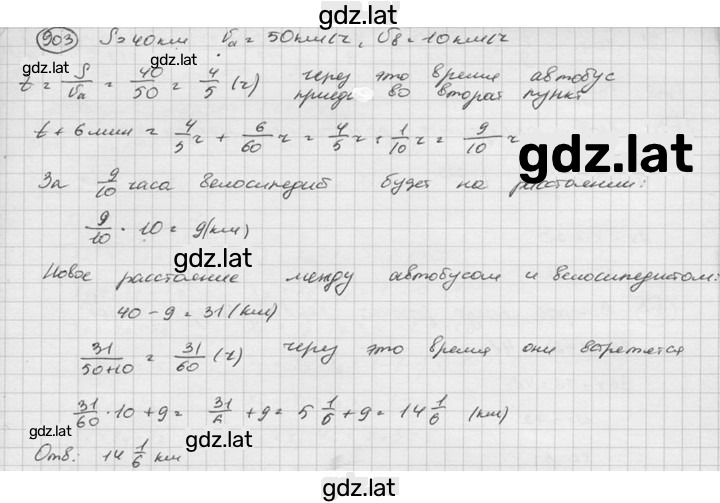 gdz.lat
903 S=40км Vа = 50км/ч, Vв = 10км/ч
gdz.lat
t = S/Vа = 40/50 = 4/5 (ч) через это время автобус
приедет во второй пункт
t + 6 мин = 4/5 ч + 6/60 ч = 4/5 ч + 1/10 ч = 9/10 ч
gdz.lat
За 9/10 часа велосипедист будет на расстоянии:
9/10 · 10 = 9(км)
gdz.lat
Новое расстояние между автобусом и велосипедистом:
40 - 9 = 31 (км)
31/50+10 = 31/60 (ч) через это время они встретятся
gdz.lat
31/60 · 10 + 9 = 31/6 + 9 = 5 1/6 + 9 = 14 1/6 (км)
gdz.lat
Отв: 14 1/6 км
gdz.lat